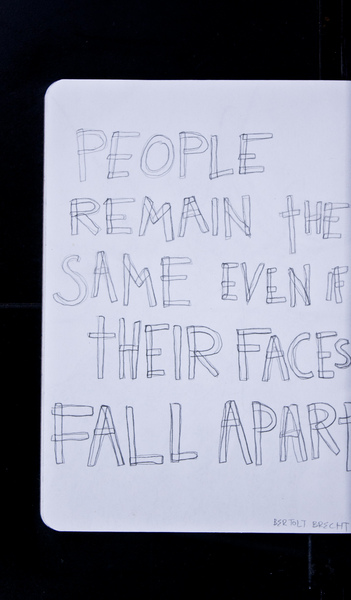 PEOPLE
REMAIN THE
SAME EVEN IF
THEIR FACES
FALL APART
BERTOLT BRECHT